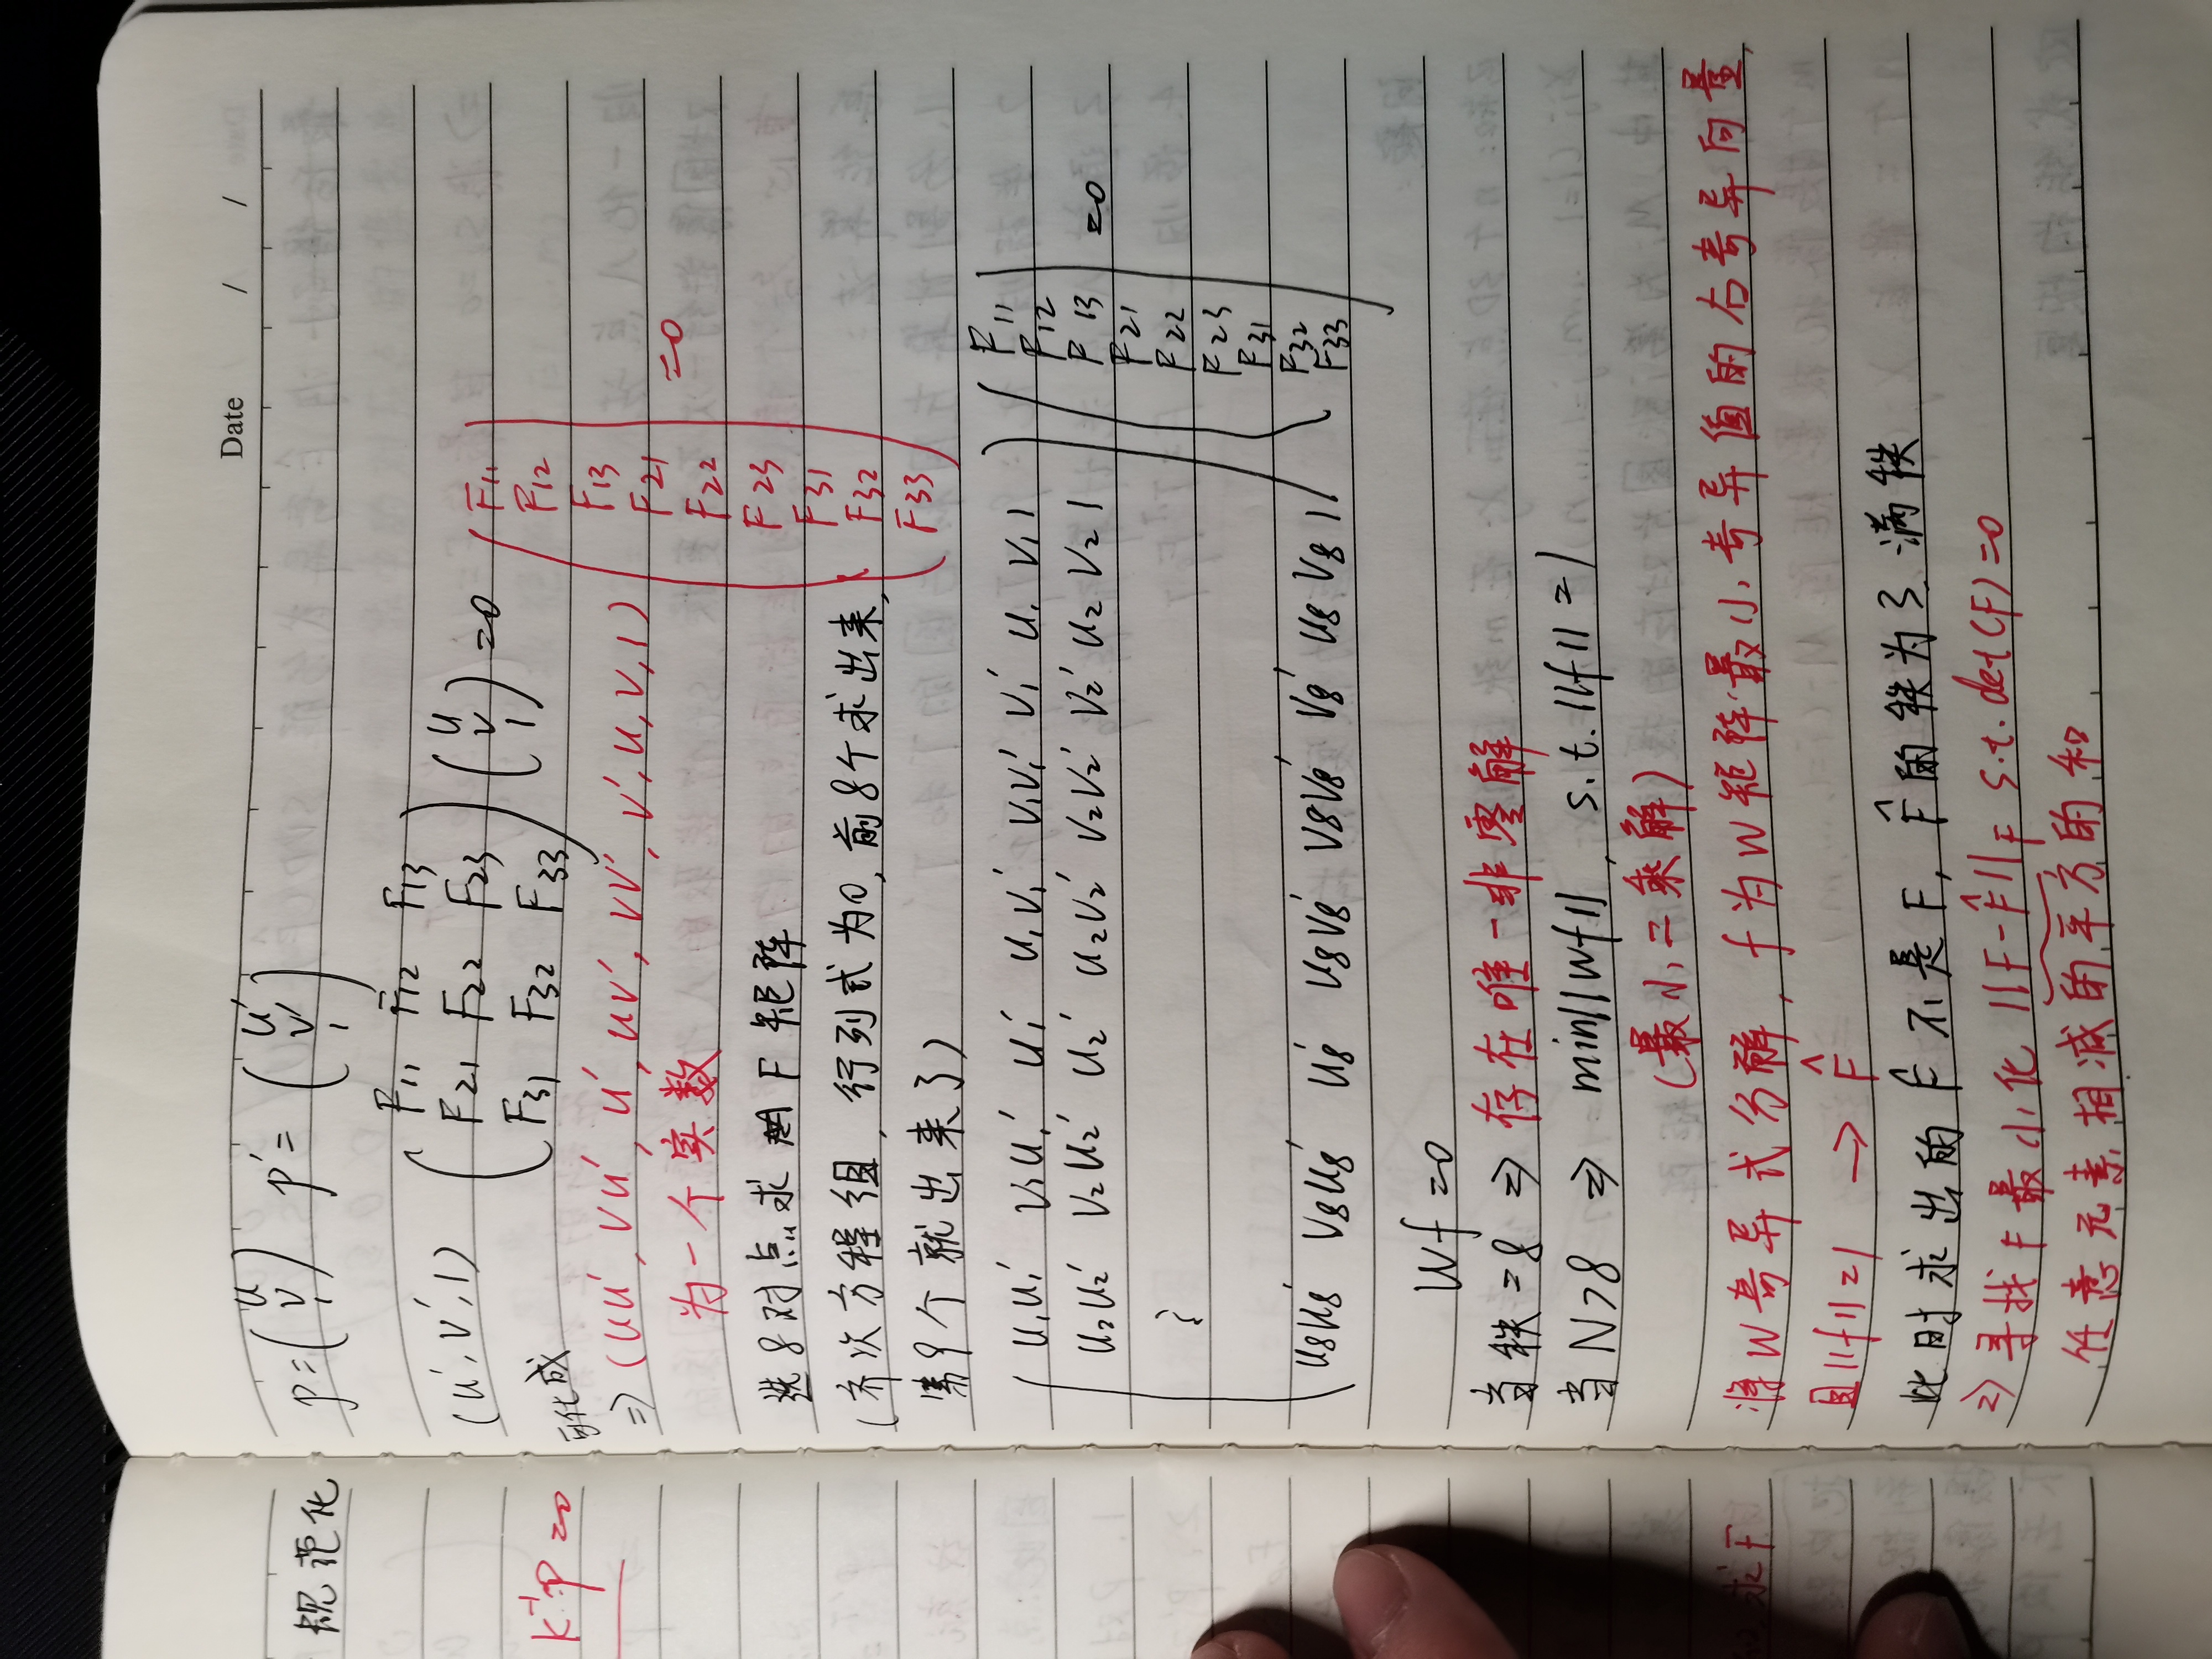 Date / /
p=(u v 1) p'=(u' v' 1)
(u',v',1) (F11 F12 F13 F21 F22 F23 F31 F32 F33) (u v 1) =0
可化成
⇒ (uu', vu', u', uv', vv', v', u, v, 1) (F11 F12 F13 F21 F22 F23 F31 F32 F33) =0
为一个实数
选8对点求F矩阵
(齐次方程组,行列式为0,前8个求出来,
第9个就出来了)
(u₁u₁' v₁u₁' u₁' u₁v₁' v₁v₁' v₁' u₁ v₁ 1
u₂u₂' v₂u₂' u₂' u₂v₂' v₂v₂' v₂' u₂ v₂ 1
⋮
u₈u₈' v₈u₈' u₈' u₈v₈' v₈v₈' v₈' u₈ v₈ 1) (F11 F12 F13 F21 F22 F23 F31 F32 F33) =0
Wf=0
当秩=8 ⇒ 存在唯一非零解
当N>8 ⇒ min||wf||, s.t. ||f||=1
(最小二乘解)
将W奇异式分解, f为W矩阵最小奇异值的右奇异向量,
且||f||=1 → F̂
此时求出的F̂不是F, F̂的秩为3 满秩
⇒ 寻找F最小化 ||F-F̂||F s.t. det(F)=0
任意元素相减的平方的和
规范化
K⁻¹P=0
求F